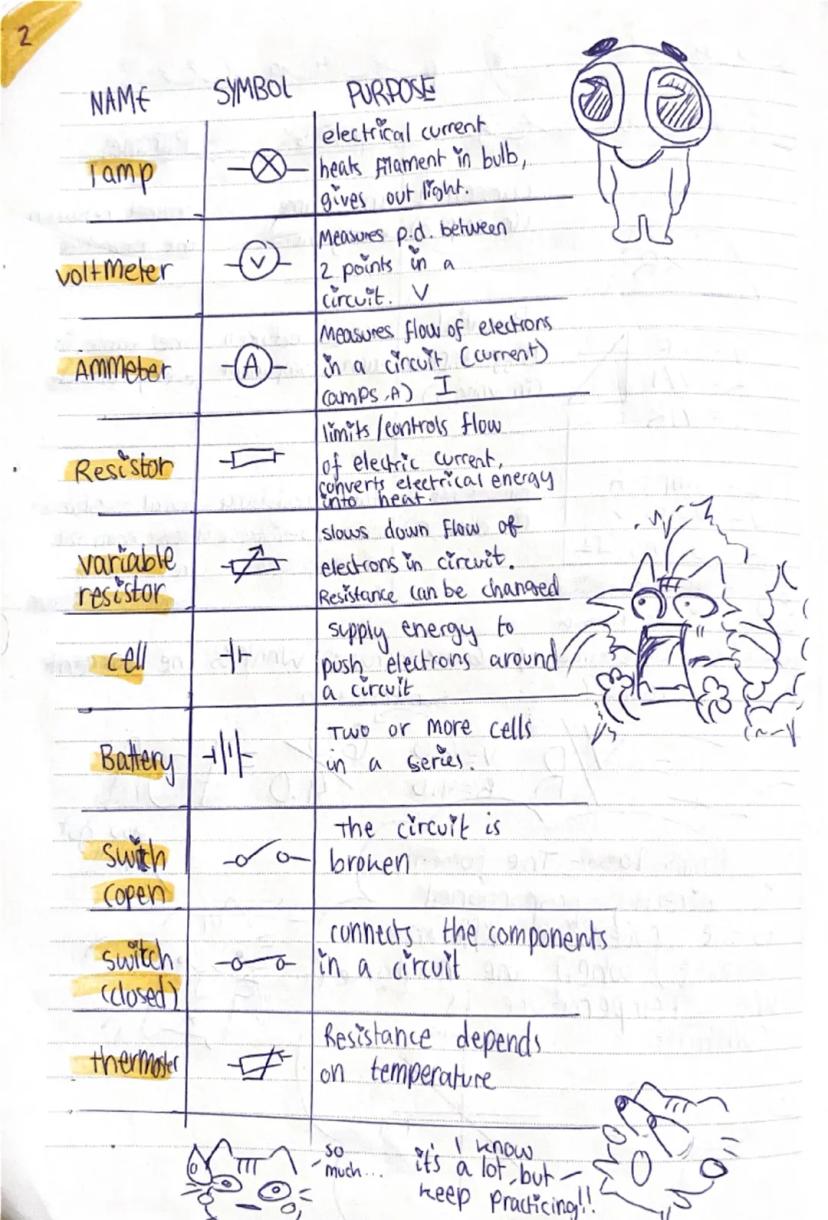 2
NAME SYMBOL PURPOSE
lamp
electrical current
heats filament in bulb,
gives out light.
voltmeter
V
Measures p.d. between
2 points in a
circuit. V
Ammeter
A
Measures flow of electrons
in a circuit (current)
(amps, A) I
Resistor
limits/controls flow
of electric current,
converts electrical energy
into heat.
variable
resistor
slows down flow of
electrons in circuit.
Resistance can be changed
cell
supply energy to
push electrons around
a circuit
Battery
Two or more cells
in a series.
Switch
(open)
the circuit is
broken
switch
(closed)
connects the components
in a circuit
Resistance depends
on temperature
so
much...
I know
it's a lot, but
keep practicing!!